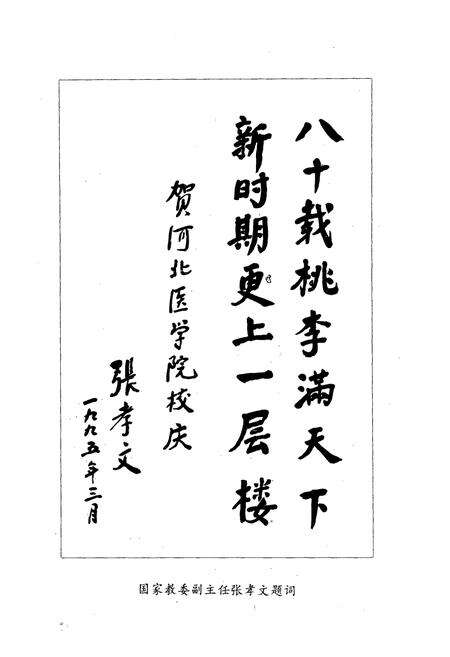 八十载桃李满天下
新时期更上一层楼
贺河北医学院校庆
張孝文
一九九五年三月
国家教委副主任张孝文题词